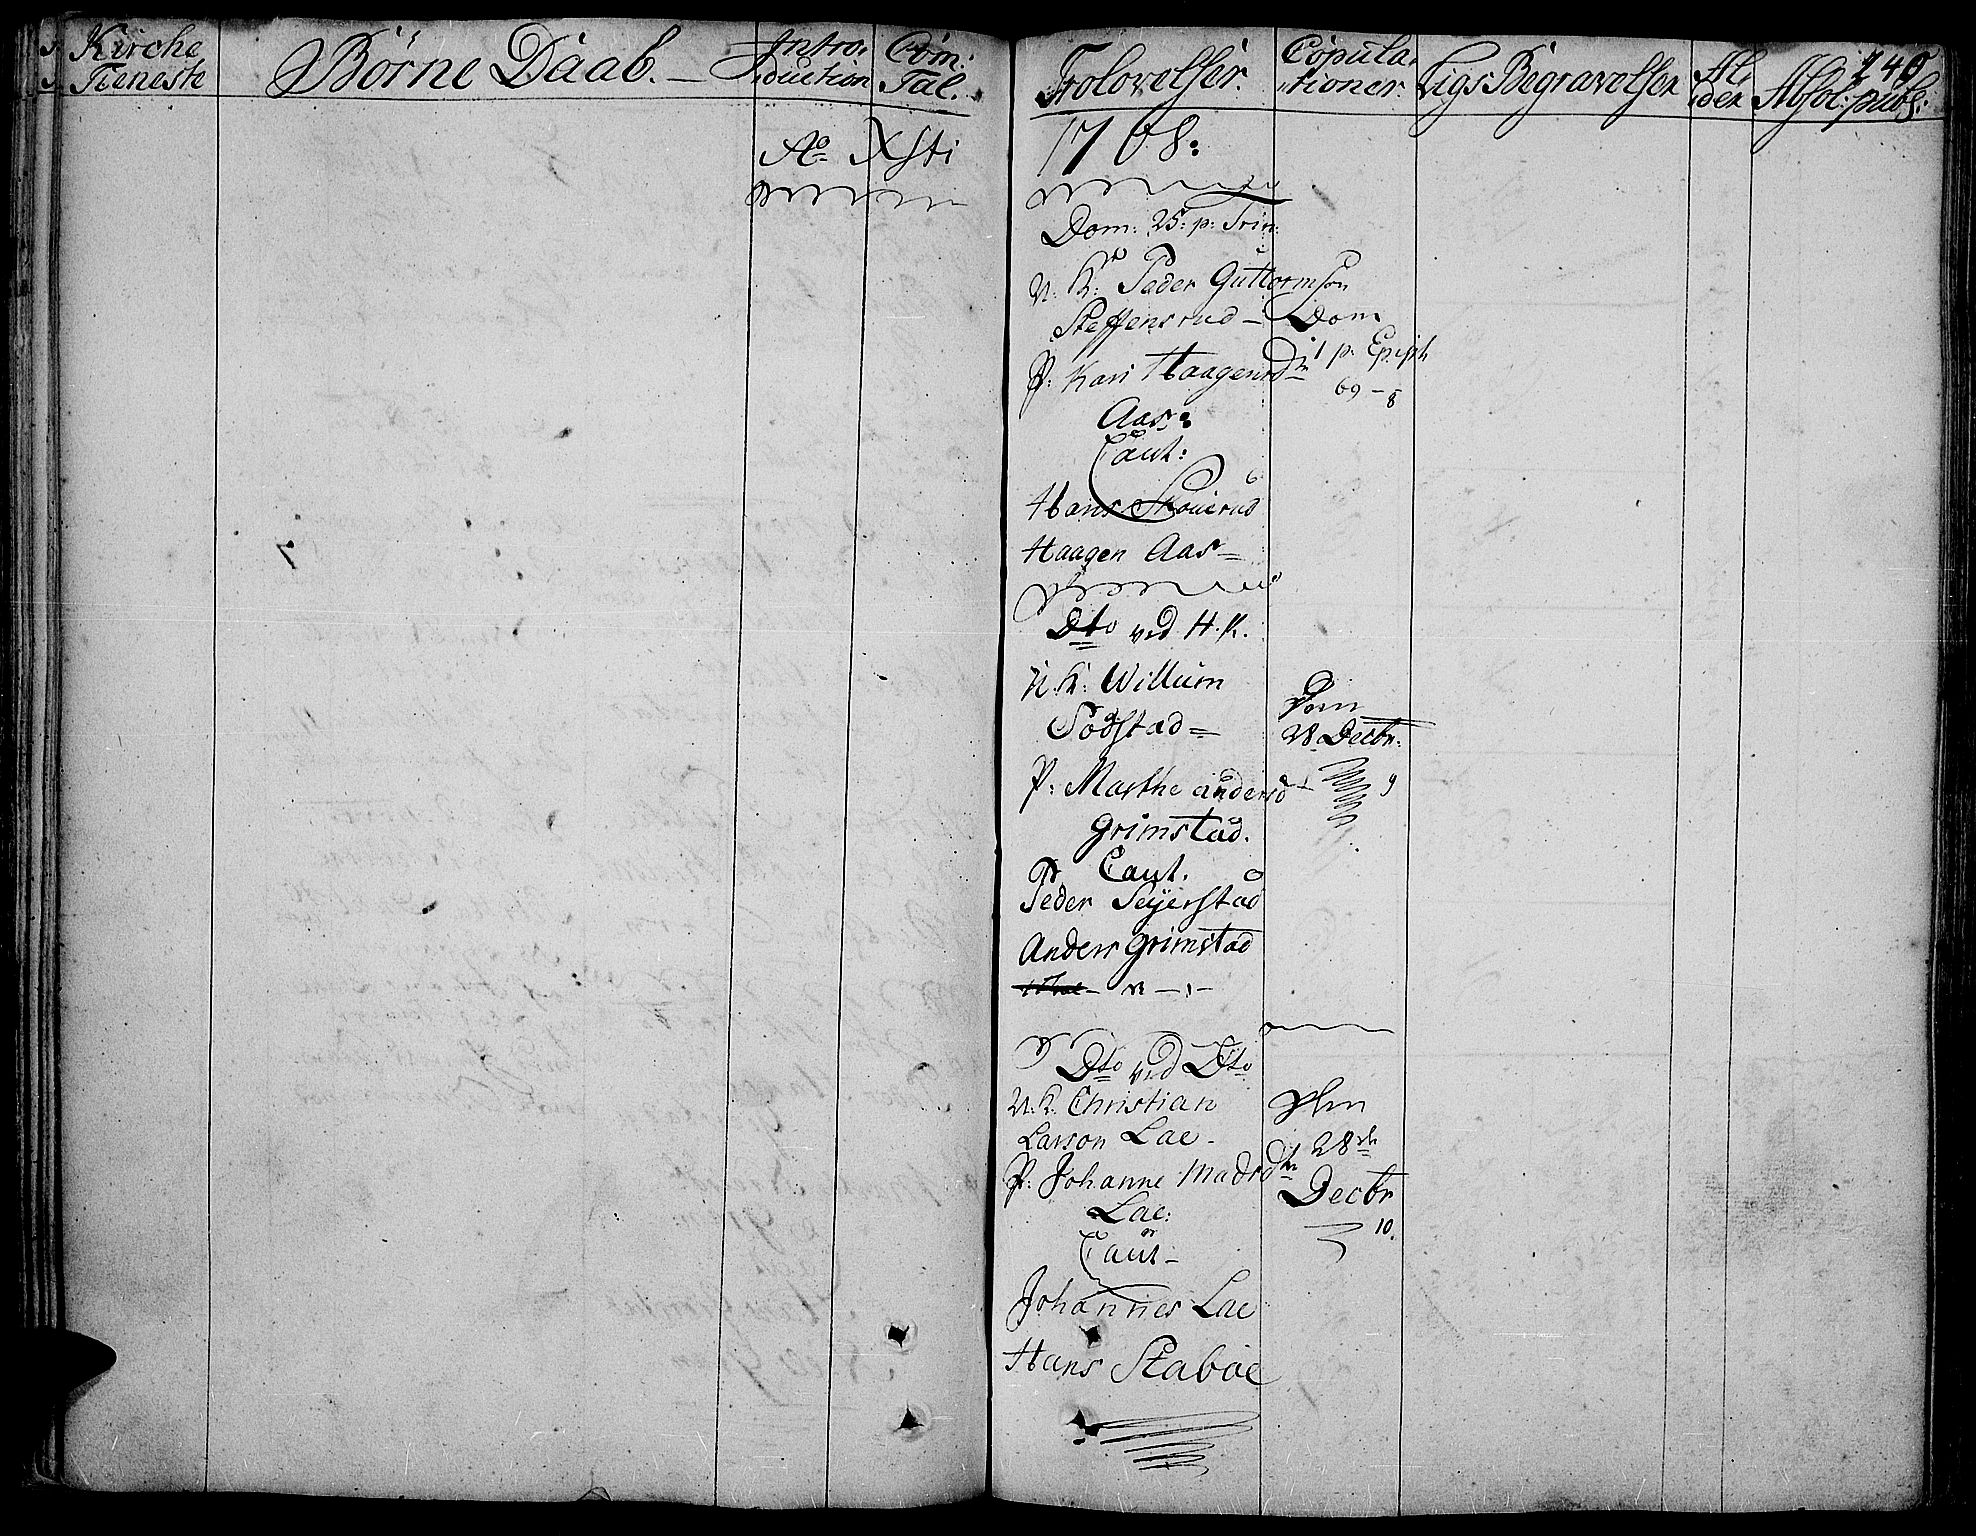 Kirche
Tieneste
Börne Daab. —
Intro,
duction
Com:
Tal.
Trolovelser.
Copula,
tioner
Ligs Begravelser
Al,
der
Absol: publ:
240
Ao Xsti 1768:
Dom: 25: p: Trin:
U. K: Peder Guttormson
Steffensrud —
P: Kari Haagensdtr
Aas:
Caut:
Hans Skouerud
Haagen Aas —
Dom
1 p. Epiph
69 — 8
Dto ved H. K.
U. K: Willum
Södstad =
P: Marthe andersd
Grimstad.
Caut.
Peder Seyerstad
Anders Grimstad
28 Decbr.
9
Dto ved Dto
U. K. Christian
Larson Lae -
P: Johanne Madsdtr
Lae:
Caut —
Johannes Lae
Hans Staboe
28de
Decbr
10.